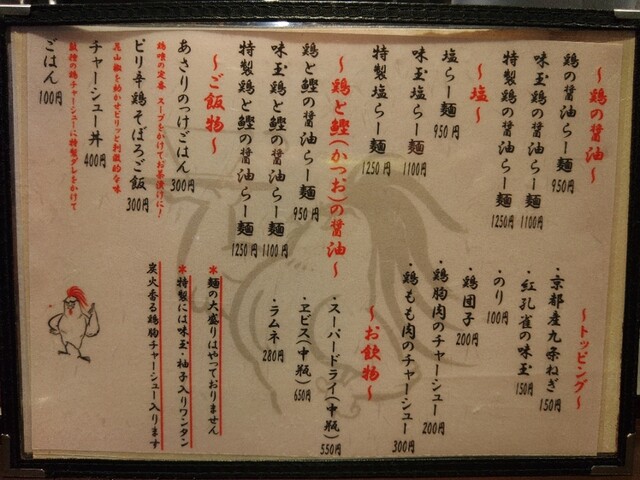 ～鶏の醤油～
鶏の醤油らー麺 950円
味玉鶏の醤油らー麺 1100円
特製鶏の醤油らー麺 1250円
～塩～
塩らー麺 950円
味玉塩らー麺 1100円
特製塩らー麺 1250円
～鶏と鰹(かつお)の醤油～
鶏と鰹の醤油らー麺 950円
味玉鶏と鰹の醤油らー麺 1100円
特製鶏と鰹の醤油らー麺 1250円
～ご飯物～
あさりのつけごはん 300円
鶏喰の定番 スープをかけてお茶漬けに!
ピリ辛鶏そぼろご飯 300円
花山椒を効かせピリッと刺激的な味
チャーシュー丼 400円
数種の鶏チャーシューに特製ダレをかけて
ごはん 100円
～トッピング～
・京都産九条ねぎ 150円
・紅孔雀の味玉 150円
・のり 100円
・鶏団子 200円
・鶏胸肉のチャーシュー 200円
・鶏もも肉のチャーシュー 300円
～お飲物～
・スーパードライ(中瓶) 550円
・ヱビス(中瓶) 650円
・ラムネ 280円
＊麺の大盛りはやっておりません
＊特製には味玉・柚子入りワンタン
炭火香る鶏胸チャーシュー入ります